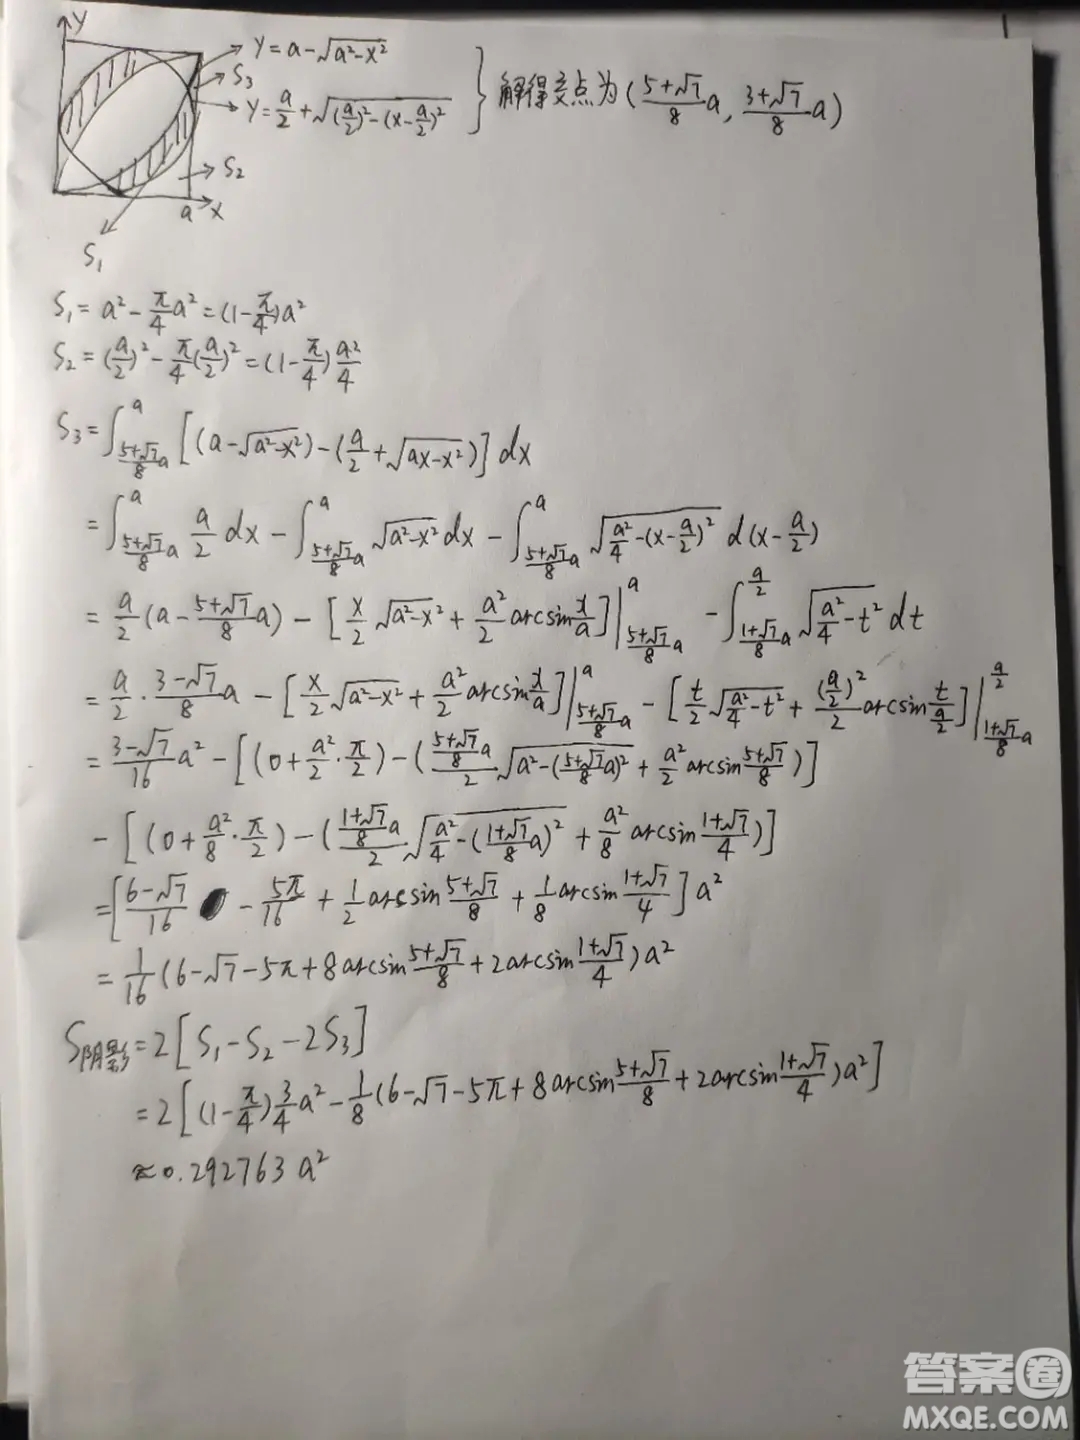 Y
Y = a - √(a²-x²)
S₃
Y = a/2 + √((a/2)² - (x - a/2)²)
} 解得交点为 ((5+√7)/8 a, (3+√7)/8 a)
S₂
a x
S₁
S₁ = a² - π/4 a² = (1 - π/4)a²
S₂ = (a/2)² - π/4 (a/2)² = (1 - π/4) a²/4
S₃ = ∫_{(5+√7)/8 a}^{a} [(a - √(a²-x²)) - (a/2 + √(ax-x²))] dx
= ∫_{(5+√7)/8 a}^{a} a/2 dx - ∫_{(5+√7)/8 a}^{a} √(a²-x²) dx - ∫_{(5+√7)/8 a}^{a} √(a²/4 - (x - a/2)²) d(x - a/2)
= a/2 (a - (5+√7)/8 a) - [x/2 √(a²-x²) + a²/2 arcsin x/a]|_{(5+√7)/8 a}^{a} - ∫_{(1+√7)/8 a}^{a/2} √(a²/4 - t²) dt
= a/2 · (3-√7)/8 a - [x/2 √(a²-x²) + a²/2 arcsin x/a]|_{(5+√7)/8 a}^{a} - [t/2 √(a²/4 - t²) + (a/2)²/2 arcsin t/(a/2)]|_{(1+√7)/8 a}^{a/2}
= (3-√7)/16 a² - [(0 + a²/2 · π/2) - ((5+√7)/8 a / 2 √(a² - ((5+√7)/8 a)²) + a²/2 arcsin (5+√7)/8)]
- [(0 + a²/8 · π/2) - ((1+√7)/8 a / 2 · √(a²/4 - ((1+√7)/8 a)²) + a²/8 arcsin (1+√7)/4)]
= [(6-√7)/16 - 5π/16 + 1/2 arcsin (5+√7)/8 + 1/8 arcsin (1+√7)/4] a²
= 1/16 (6 - √7 - 5π + 8 arcsin (5+√7)/8 + 2 arcsin (1+√7)/4) a²
S阴影 = 2[S₁ - S₂ - 2S₃]
= 2[(1 - π/4) 3/4 a² - 1/8 (6 - √7 - 5π + 8 arcsin (5+√7)/8 + 2 arcsin (1+√7)/4) a²]
≈ 0.292763 a²
答案圈
MXQE.COM